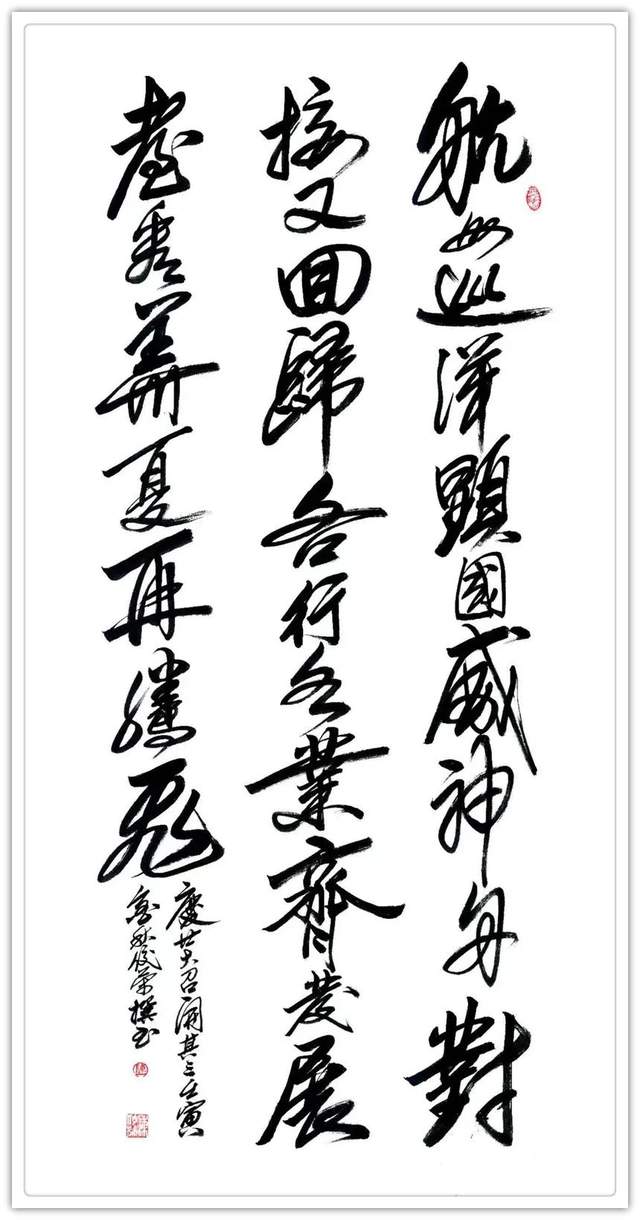 航母巡洋顯國威神舟對
接又回歸各行各業齊發展
秀華夏再騰飛
慶廿大召開其三壬寅
俊榮撰書